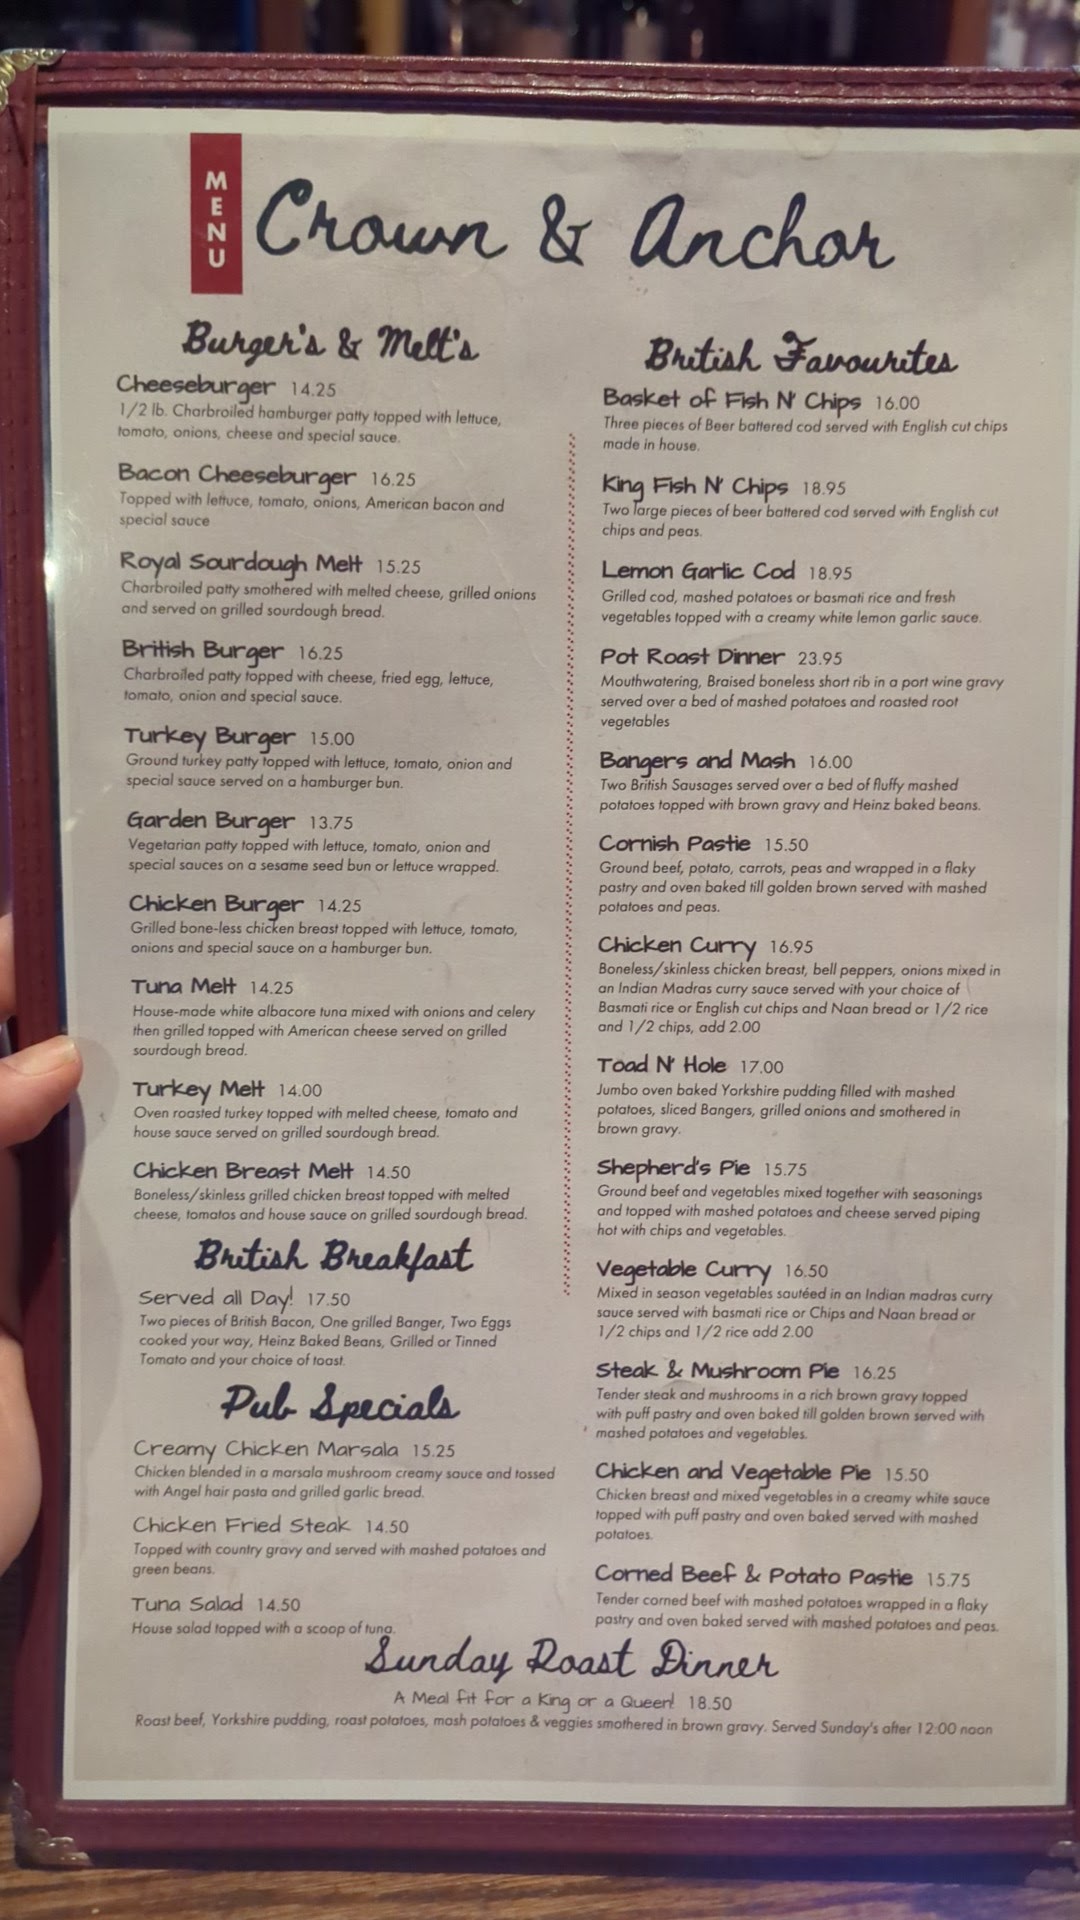 MENU
Crown & Anchor
Burger's & Melt's
Cheeseburger 14.25
1/2 lb. Charbroiled hamburger patty topped with lettuce,
tomato, onions, cheese and special sauce.
Bacon Cheeseburger 16.25
Topped with lettuce, tomato, onions, American bacon and
special sauce
Royal Sourdough Melt 15.25
Charbroiled patty smothered with melted cheese, grilled onions
and served on grilled sourdough bread.
British Burger 16.25
Charbroiled patty topped with cheese, fried egg, lettuce,
tomato, onion and special sauce.
Turkey Burger 15.00
Ground turkey patty topped with lettuce, tomato, onion and
special sauce served on a hamburger bun.
Garden Burger 13.75
Vegetarian patty topped with lettuce, tomato, onion and
special sauces on a sesame seed bun or lettuce wrapped.
Chicken Burger 14.25
Grilled bone-less chicken breast topped with lettuce, tomato,
onions and special sauce on a hamburger bun.
Tuna Melt 14.25
House-made white albacore tuna mixed with onions and celery
then grilled topped with American cheese served on grilled
sourdough bread.
Turkey Melt 14.00
Oven roasted turkey topped with melted cheese, tomato and
house sauce served on grilled sourdough bread.
Chicken Breast Melt 14.50
Boneless/skinless grilled chicken breast topped with melted
cheese, tomatos and house sauce on grilled sourdough bread.
British Breakfast
Served all Day! 17.50
Two pieces of British Bacon, One grilled Banger, Two Eggs
cooked your way, Heinz Baked Beans, Grilled or Tinned
Tomato and your choice of toast.
Pub Specials
Creamy Chicken Marsala 15.25
Chicken blended in a marsala mushroom creamy sauce and tossed
with Angel hair pasta and grilled garlic bread.
Chicken Fried Steak 14.50
Topped with country gravy and served with mashed potatoes and
green beans.
Tuna Salad 14.50
House salad topped with a scoop of tuna.
British Favourites
Basket of Fish N' Chips 16.00
Three pieces of Beer battered cod served with English cut chips
made in house.
King Fish N' Chips 18.95
Two large pieces of beer battered cod served with English cut
chips and peas.
Lemon Garlic Cod 18.95
Grilled cod, mashed potatoes or basmati rice and fresh
vegetables topped with a creamy white lemon garlic sauce.
Pot Roast Dinner 23.95
Mouthwatering, Braised boneless short rib in a port wine gravy
served over a bed of mashed potatoes and roasted root
vegetables
Bangers and Mash 16.00
Two British Sausages served over a bed of fluffy mashed
potatoes topped with brown gravy and Heinz baked beans.
Cornish Pastie 15.50
Ground beef, potato, carrots, peas and wrapped in a flaky
pastry and oven baked till golden brown served with mashed
potatoes and peas.
Chicken Curry 16.95
Boneless/skinless chicken breast, bell peppers, onions mixed in
an Indian Madras curry sauce served with your choice of
Basmati rice or English cut chips and Naan bread or 1/2 rice
and 1/2 chips, add 2.00
Toad N' Hole 17.00
Jumbo oven baked Yorkshire pudding filled with mashed
potatoes, sliced Bangers, grilled onions and smothered in
brown gravy.
Shepherd's Pie 15.75
Ground beef and vegetables mixed together with seasonings
and topped with mashed potatoes and cheese served piping
hot with chips and vegetables.
Vegetable Curry 16.50
Mixed in season vegetables sautéed in an Indian madras curry
sauce served with basmati rice or Chips and Naan bread or
1/2 chips and 1/2 rice add 2.00
Steak & Mushroom Pie 16.25
Tender steak and mushrooms in a rich brown gravy topped
with puff pastry and oven baked till golden brown served with
mashed potatoes and vegetables.
Chicken and Vegetable Pie 15.50
Chicken breast and mixed vegetables in a creamy white sauce
topped with puff pastry and oven baked served with mashed
potatoes.
Corned Beef & Potato Pastie 15.75
Tender corned beef with mashed potatoes wrapped in a flaky
pastry and oven baked served with mashed potatoes and peas.
Sunday Roast Dinner
A Meal fit for a King or a Queen! 18.50
Roast beef, Yorkshire pudding, roast potatoes, mash potatoes & veggies smothered in brown gravy. Served Sunday's after 12:00 noon